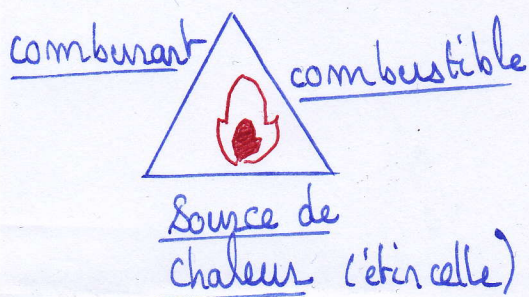 comburant
combustible
Source de
chaleur (étincelle)